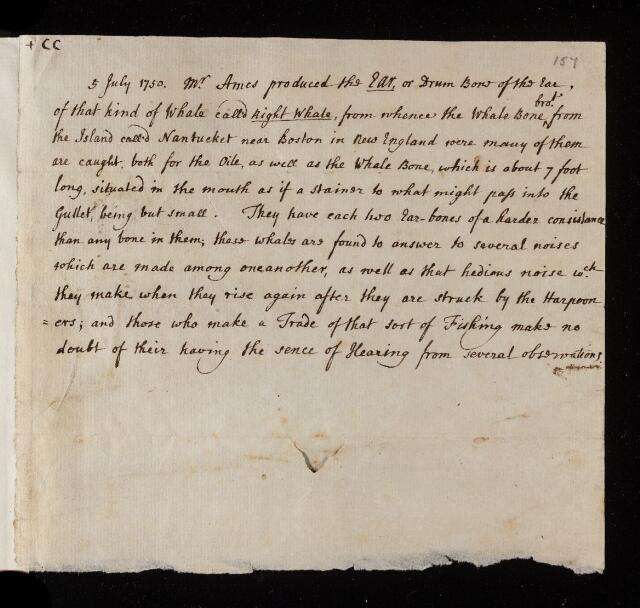 + CC
157
5 July 1750. Mr. Ames produced the Ear, or Drum Bone of the Ear,
of that kind of Whale call'd Right Whale, from whence the Whale Bone, brot. from
the Island call'd Nantucket near Boston in New England were many of them
are caught, both for the Oile, as well as the Whale Bone, which is about 7 foot
long, situated in the mouth as if a stainer to what might pass into the
Gullet, being but small. They have each two Ear-bones of a harder consistance
than any bone in them; these whales are found to answer to several noises
which are made among oneanother, as well as that hedious noise wch.
they make when they rise again after they are struck by the Harpoon
=ers; and those who make a Trade of that sort of Fishing make no
doubt of their having the sence of Hearing from several observations